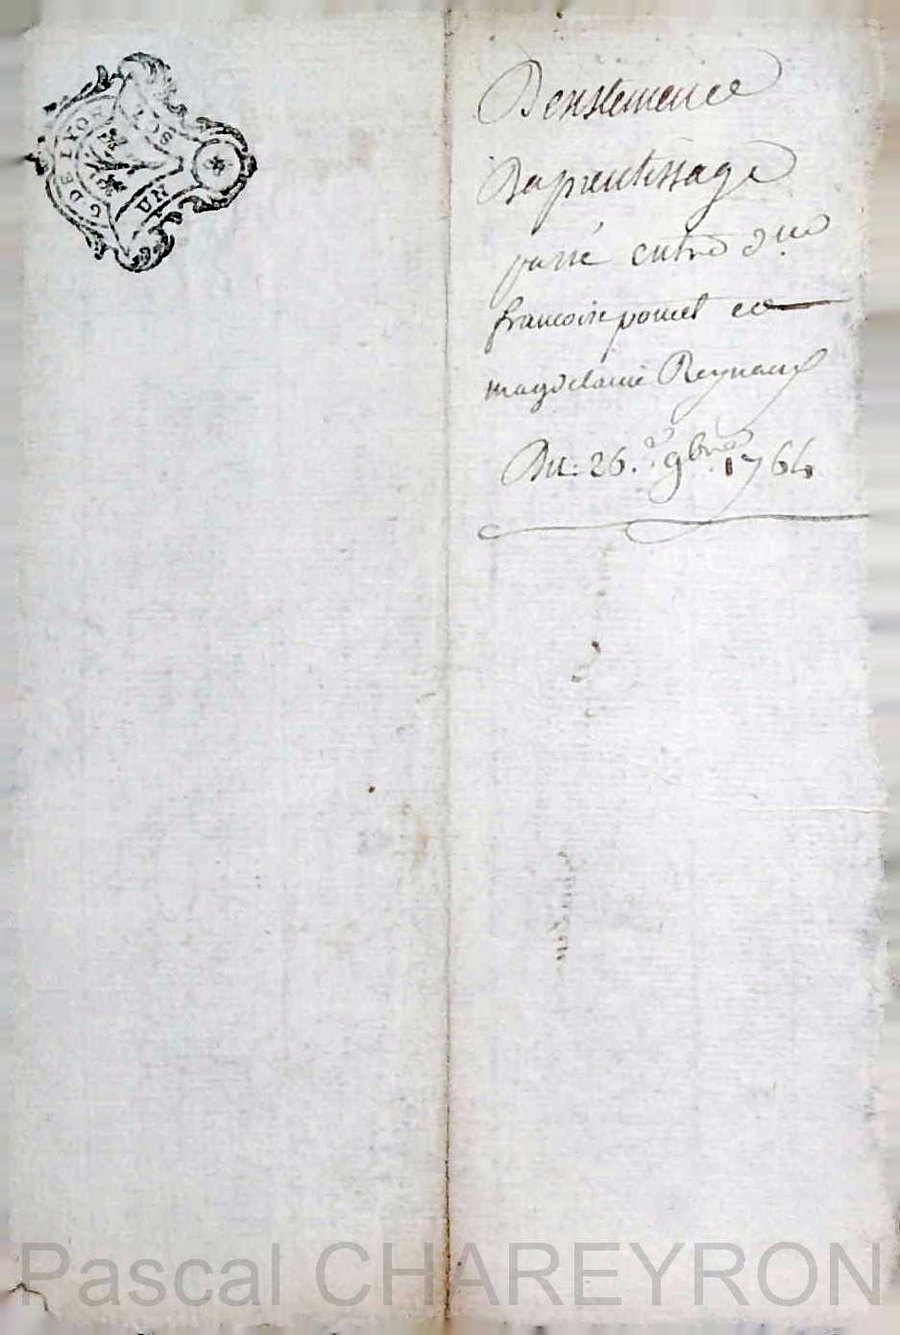 G DE LYON
SOLS
Daprentissage
passé entre
francoise poncet et
magdelaine Reynaud
Du: 26.e 9bre 1764
Pascal CHAREYRON